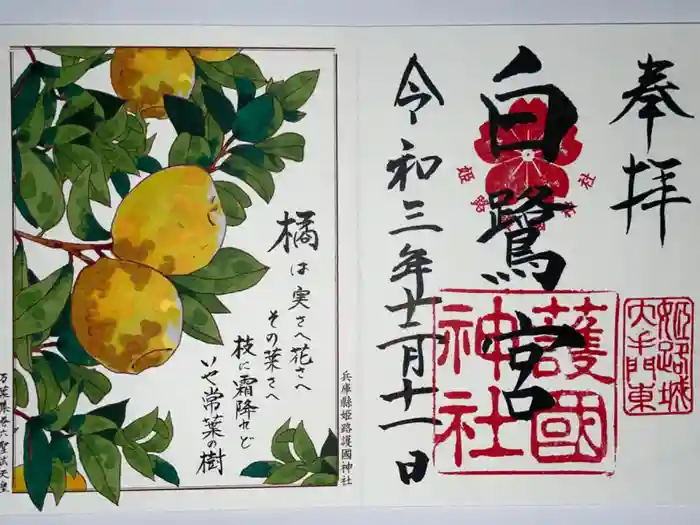 奉拝
姫路城
大手門東
白鷺宮
護國
神社
令和三年十二月十一日
兵庫縣姫路護國神社
橘は
実さへ花さへ
その葉さへ
枝に霜降れど
いや常葉の樹
万葉集巻六聖武天皇